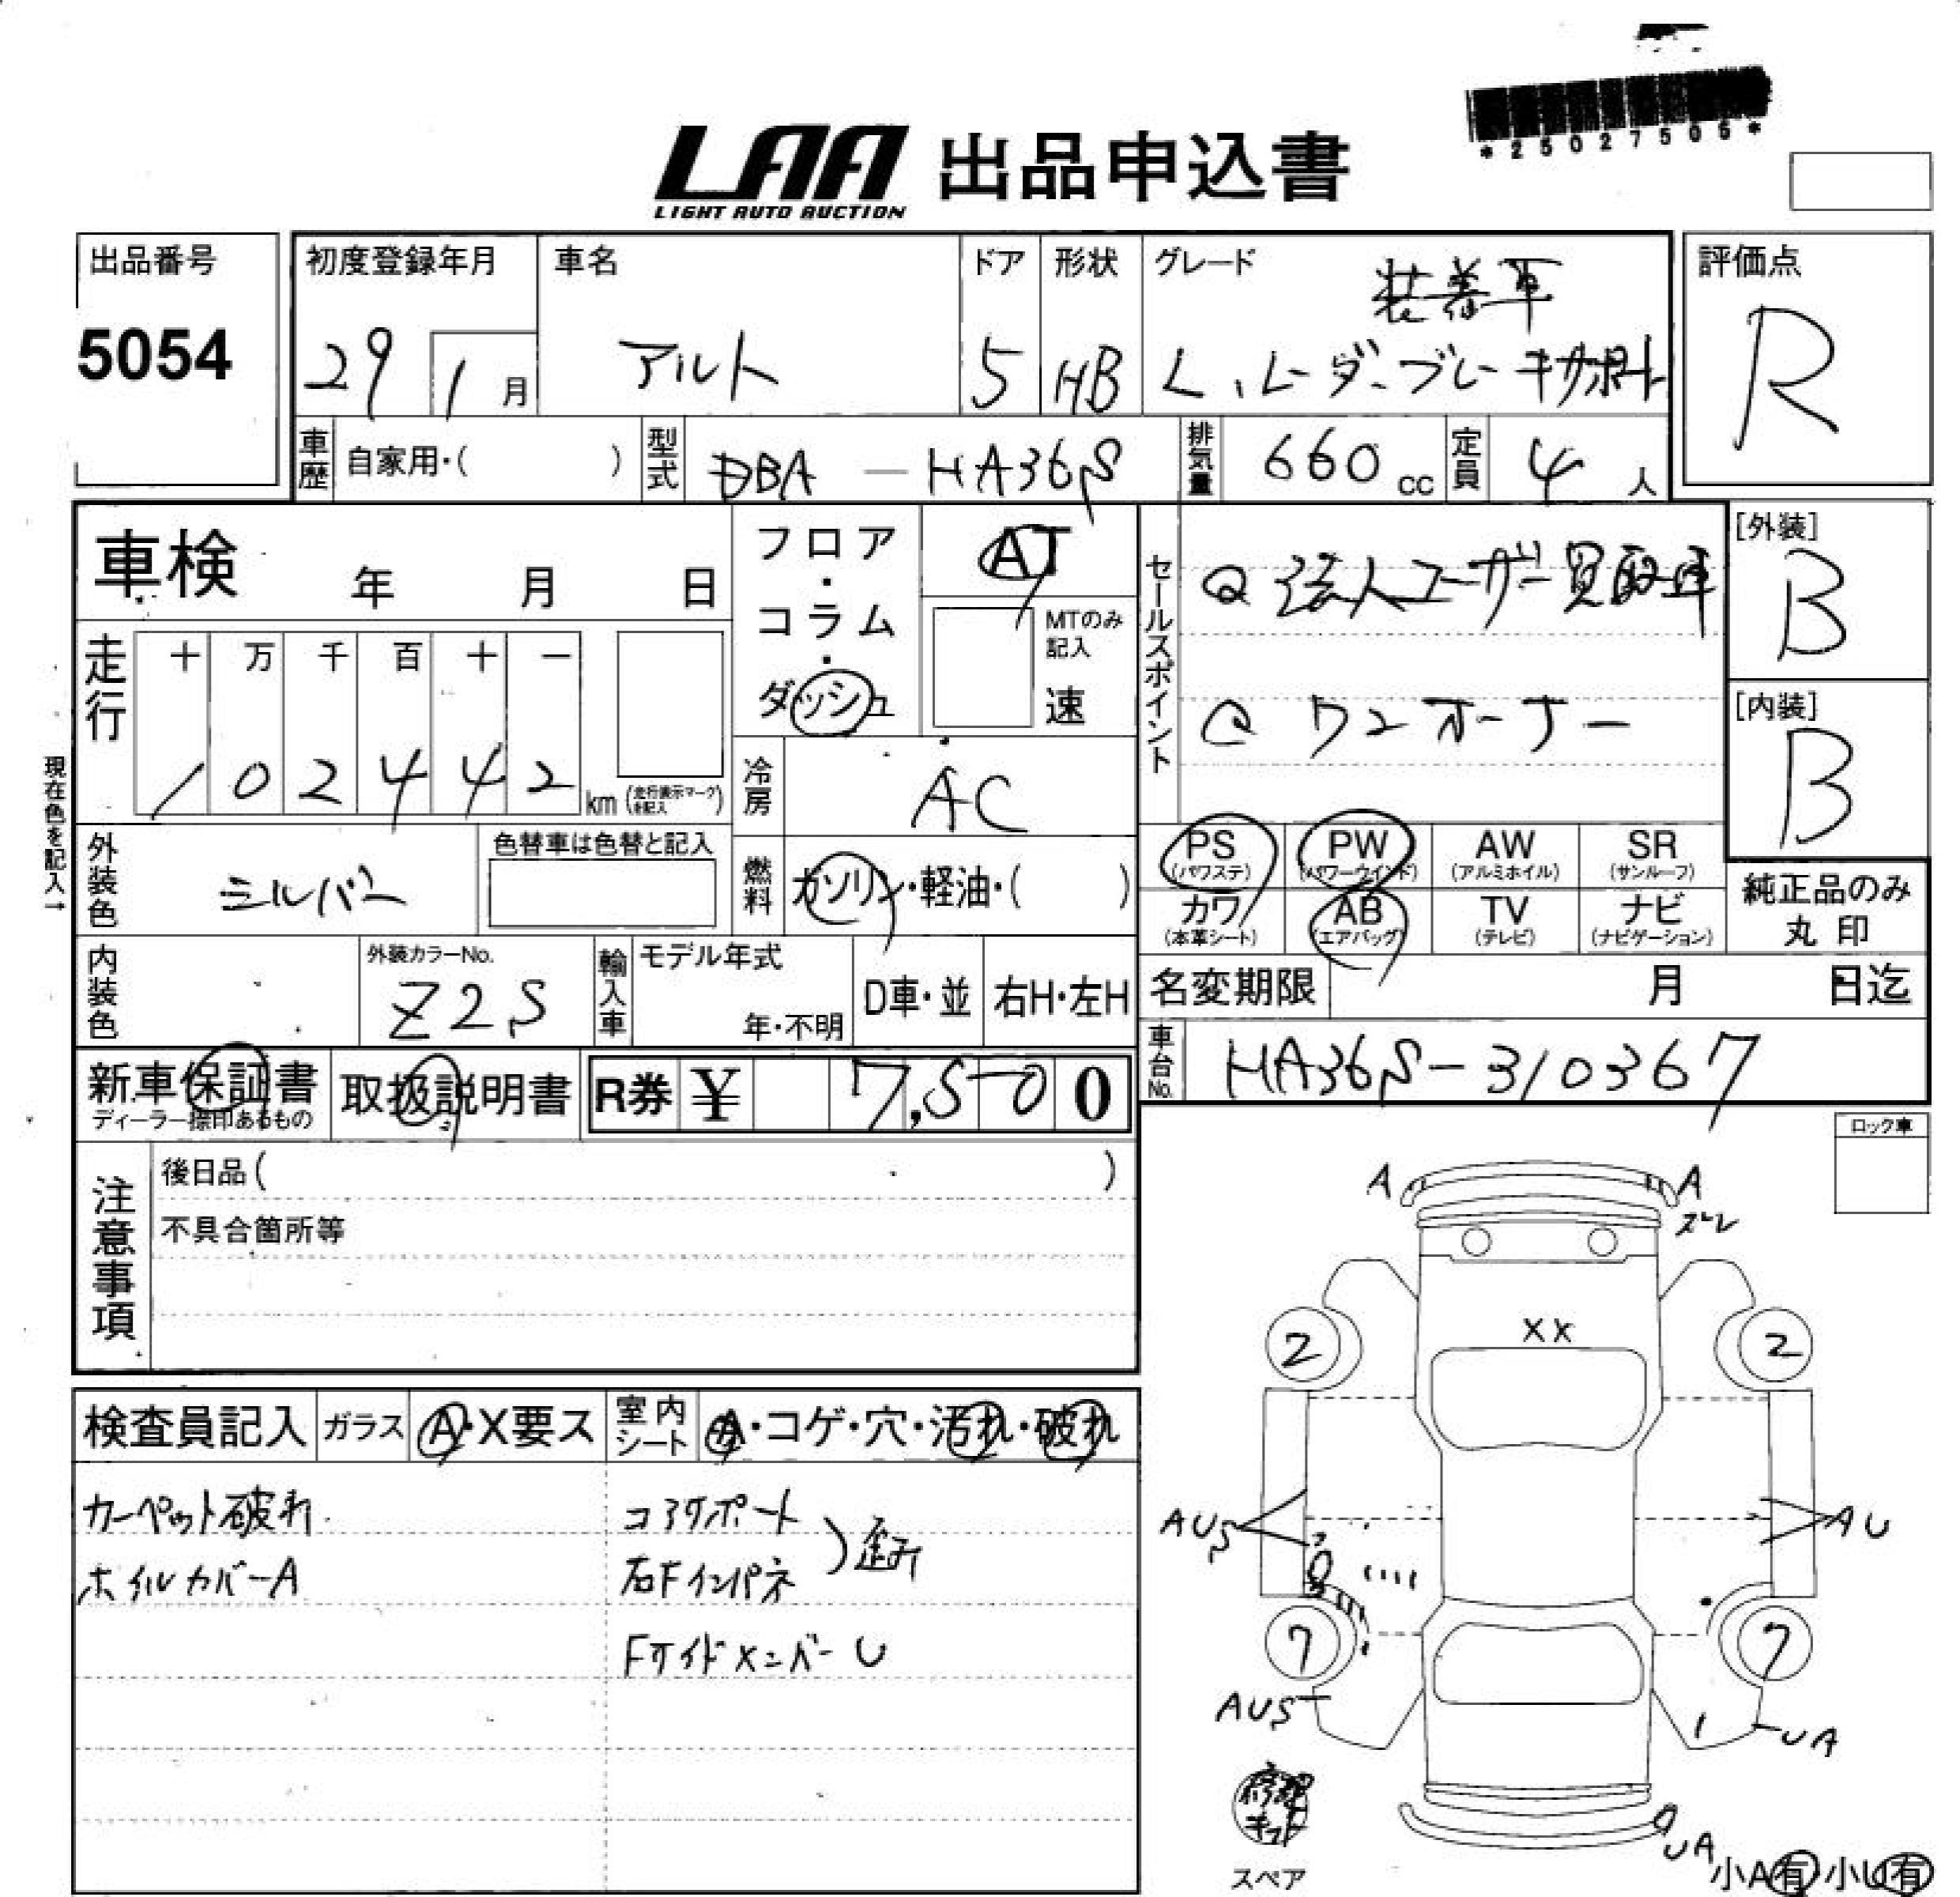 *25027505*
LAA 出品申込書
LIGHT AUTO AUCTION
出品番号
5054
初度登録年月
29 1月
車名
アルト
ドア
5
形状
HB
グレード
装着車
L、レーダーブレーキサポート
評価点
R
車歴 自家用・( )
型式 DBA — HA36S
排気量 660 cc
定員 4 人
車検 年 月 日
フロア・コラム・ダッシュ
AT
MTのみ記入
速
セールスポイント
法人ユーザー買取車
ワンオーナー
[外装]
B
[内装]
B
走行
十 万 千 百 十 一
1 0 2 4 4 2 km (走行表示マークを記入)
現在色を記入→
冷房 AC
外装色 シルバー
色替車は色替と記入
燃料 ガソリン・軽油・( )
PS (パワステ)
PW (パワーウインド)
AW (アルミホイル)
SR (サンルーフ)
カワ (本革シート)
AB (エアバッグ)
TV (テレビ)
ナビ (ナビゲーション)
純正品のみ丸印
内装色
外装カラーNo.
Z2S
輸入車
モデル年式
年・不明
D車・並
右H・左H
名変期限 月 日迄
車台No. HA36S-310367
新車保証書
ディーラー捺印あるもの
取扱説明書
R券 ¥ 7,500
ロック車
注意事項
後日品( )
不具合箇所等
検査員記入
ガラス A・X要ス
室内シート A・コゲ・穴・汚れ・破れ
カーペット破れ
ホイルカバーA
コアサポート
右Fインパネ
歪み
FサイドメンバーU
A
A
ズレ
XX
2
2
AUS
AU
7
7
AUS
UA
修理キット
スペア
UA
小A有 小U有